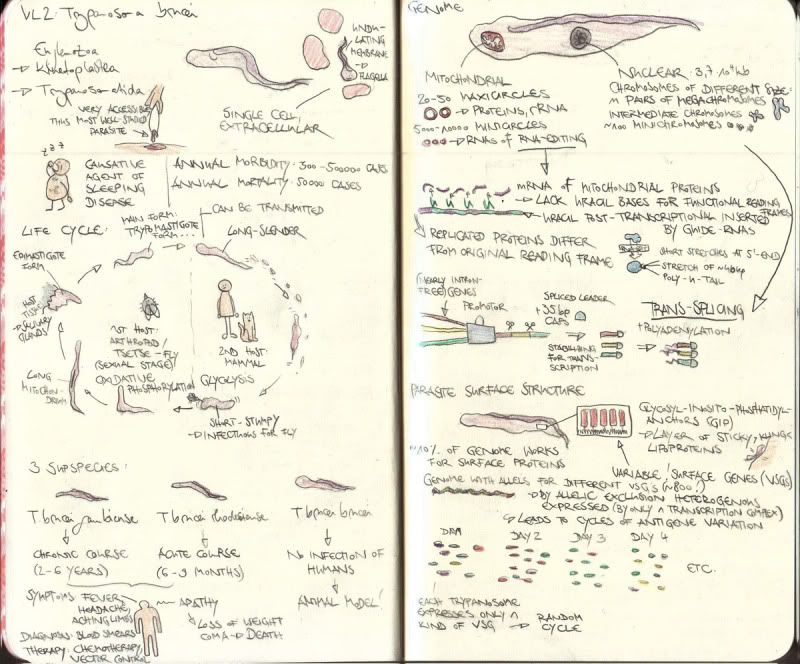 VL2: Trypanosoma brucei
Euglenozoa
→ Kinetoplastea
→ Trypanosomatida
UNDU-
LATING
MEMBRANE
→ FLAGELLA
SINGLE CELL,
EXTRACELLULAR
VERY ACCESSIBLE
THUS MOST WELL-STUDIED
PARASITE
zzz
CAUSATIVE
AGENT OF
SLEEPING
DISEASE
ANNUAL MORBIDITY: 300-500000 CASES
ANNUAL MORTALITY: 50000 CASES
MAIN FORM:
TRYPOMASTIGOTE
FORM...
CAN BE TRANSMITTED
LIFE CYCLE:
LONG-SLENDER
EPIMASTIGOTE
FORM
HOST
TISSUE
SALIVARY
GLANDS
1ST HOST:
ARTHROPOD/
TSETSE-FLY
(SEXUAL STAGE)
OXIDATIVE
PHOSPHORYLATION
2ND HOST:
MAMMAL
GLYCOLYSIS
LONG
MITOCHON-
DRIUM
SHORT-STUMPY
→ INFECTIOUS FOR FLY
3 SUBSPECIES:
T brucei gambiense
T brucei rhodesiense
T brucei brucei
CHRONIC COURSE
(2-6 YEARS)
ACUTE COURSE
(6-9 MONTHS)
NO INFECTION OF
HUMANS
ANIMAL MODEL!
SYMPTOMS FEVER,
HEADACHE,
ACHING LIMBS
APATHY
LOSS OF WEIGHT
COMA → DEATH
DIAGNOSIS: BLOOD SMEARS
THERAPY: CHEMOTHERAPY
VECTOR CONTROL
GENOME
MITOCHONDRIAL
20-50 MAXICIRCLES
→ PROTEINS, rRNA
5000-10000 MINICIRCLES
→ RNAS OF RNA-EDITING
NUCLEAR: 3,7·10⁴ kb
CHROMOSOMES OF DIFFERENT SIZE:
11 PAIRS OF MEGACHROMOSOMES
INTERMEDIATE CHROMOSOMES
~100 MINICHROMOSOMES
mRNA OF MITOCHONDRIAL PROTEINS
→ LACK URACIL BASES FOR FUNCTIONAL READING FRAMES
→ URACIL POST-TRANSCRIPTIONAL INSERTED
BY GUIDE-RNAS
REPLICATED PROTEINS DIFFER
FROM ORIGINAL READING FRAME
SHORT STRETCHES AT 5'-END
POLY-U-TAIL
(NEARLY INTRON-
FREE) GENES
PROMOTOR
SPLICED LEADER
+ 35 bp
CAPS
STABILIZING
FOR TRANS-
SCRIPTION
TRANS-SPLICING
+ POLYADENYLATION
PARASITE SURFACE STRUCTURE
GLYCOSYL-INOSITO-PHOSPHATIDYL-
ANCHORS (GIP)
→ LAYER OF STICKY, KLINGE
LIPOPROTEINS
~10% OF GENOME WORKS
FOR SURFACE PROTEINS
VARIABLE SURFACE GENES (VSGs)
GENOME WITH ALLELS FOR DIFFERENT VSGs (~800!)
→ BY ALLELIC EXCLUSION HETEROGENOUS
EXPRESSED (BY ONLY 1 TRANSCRIPTION COMPLEX)
LEADS TO CYCLES OF ANTIGENE VARIATION
DAY 1 DAY 2 DAY 3 DAY 4
ETC.
EACH TRYPANOSOME
EXPRESSES ONLY 1
KIND OF VSG
→ RANDOM
CYCLE